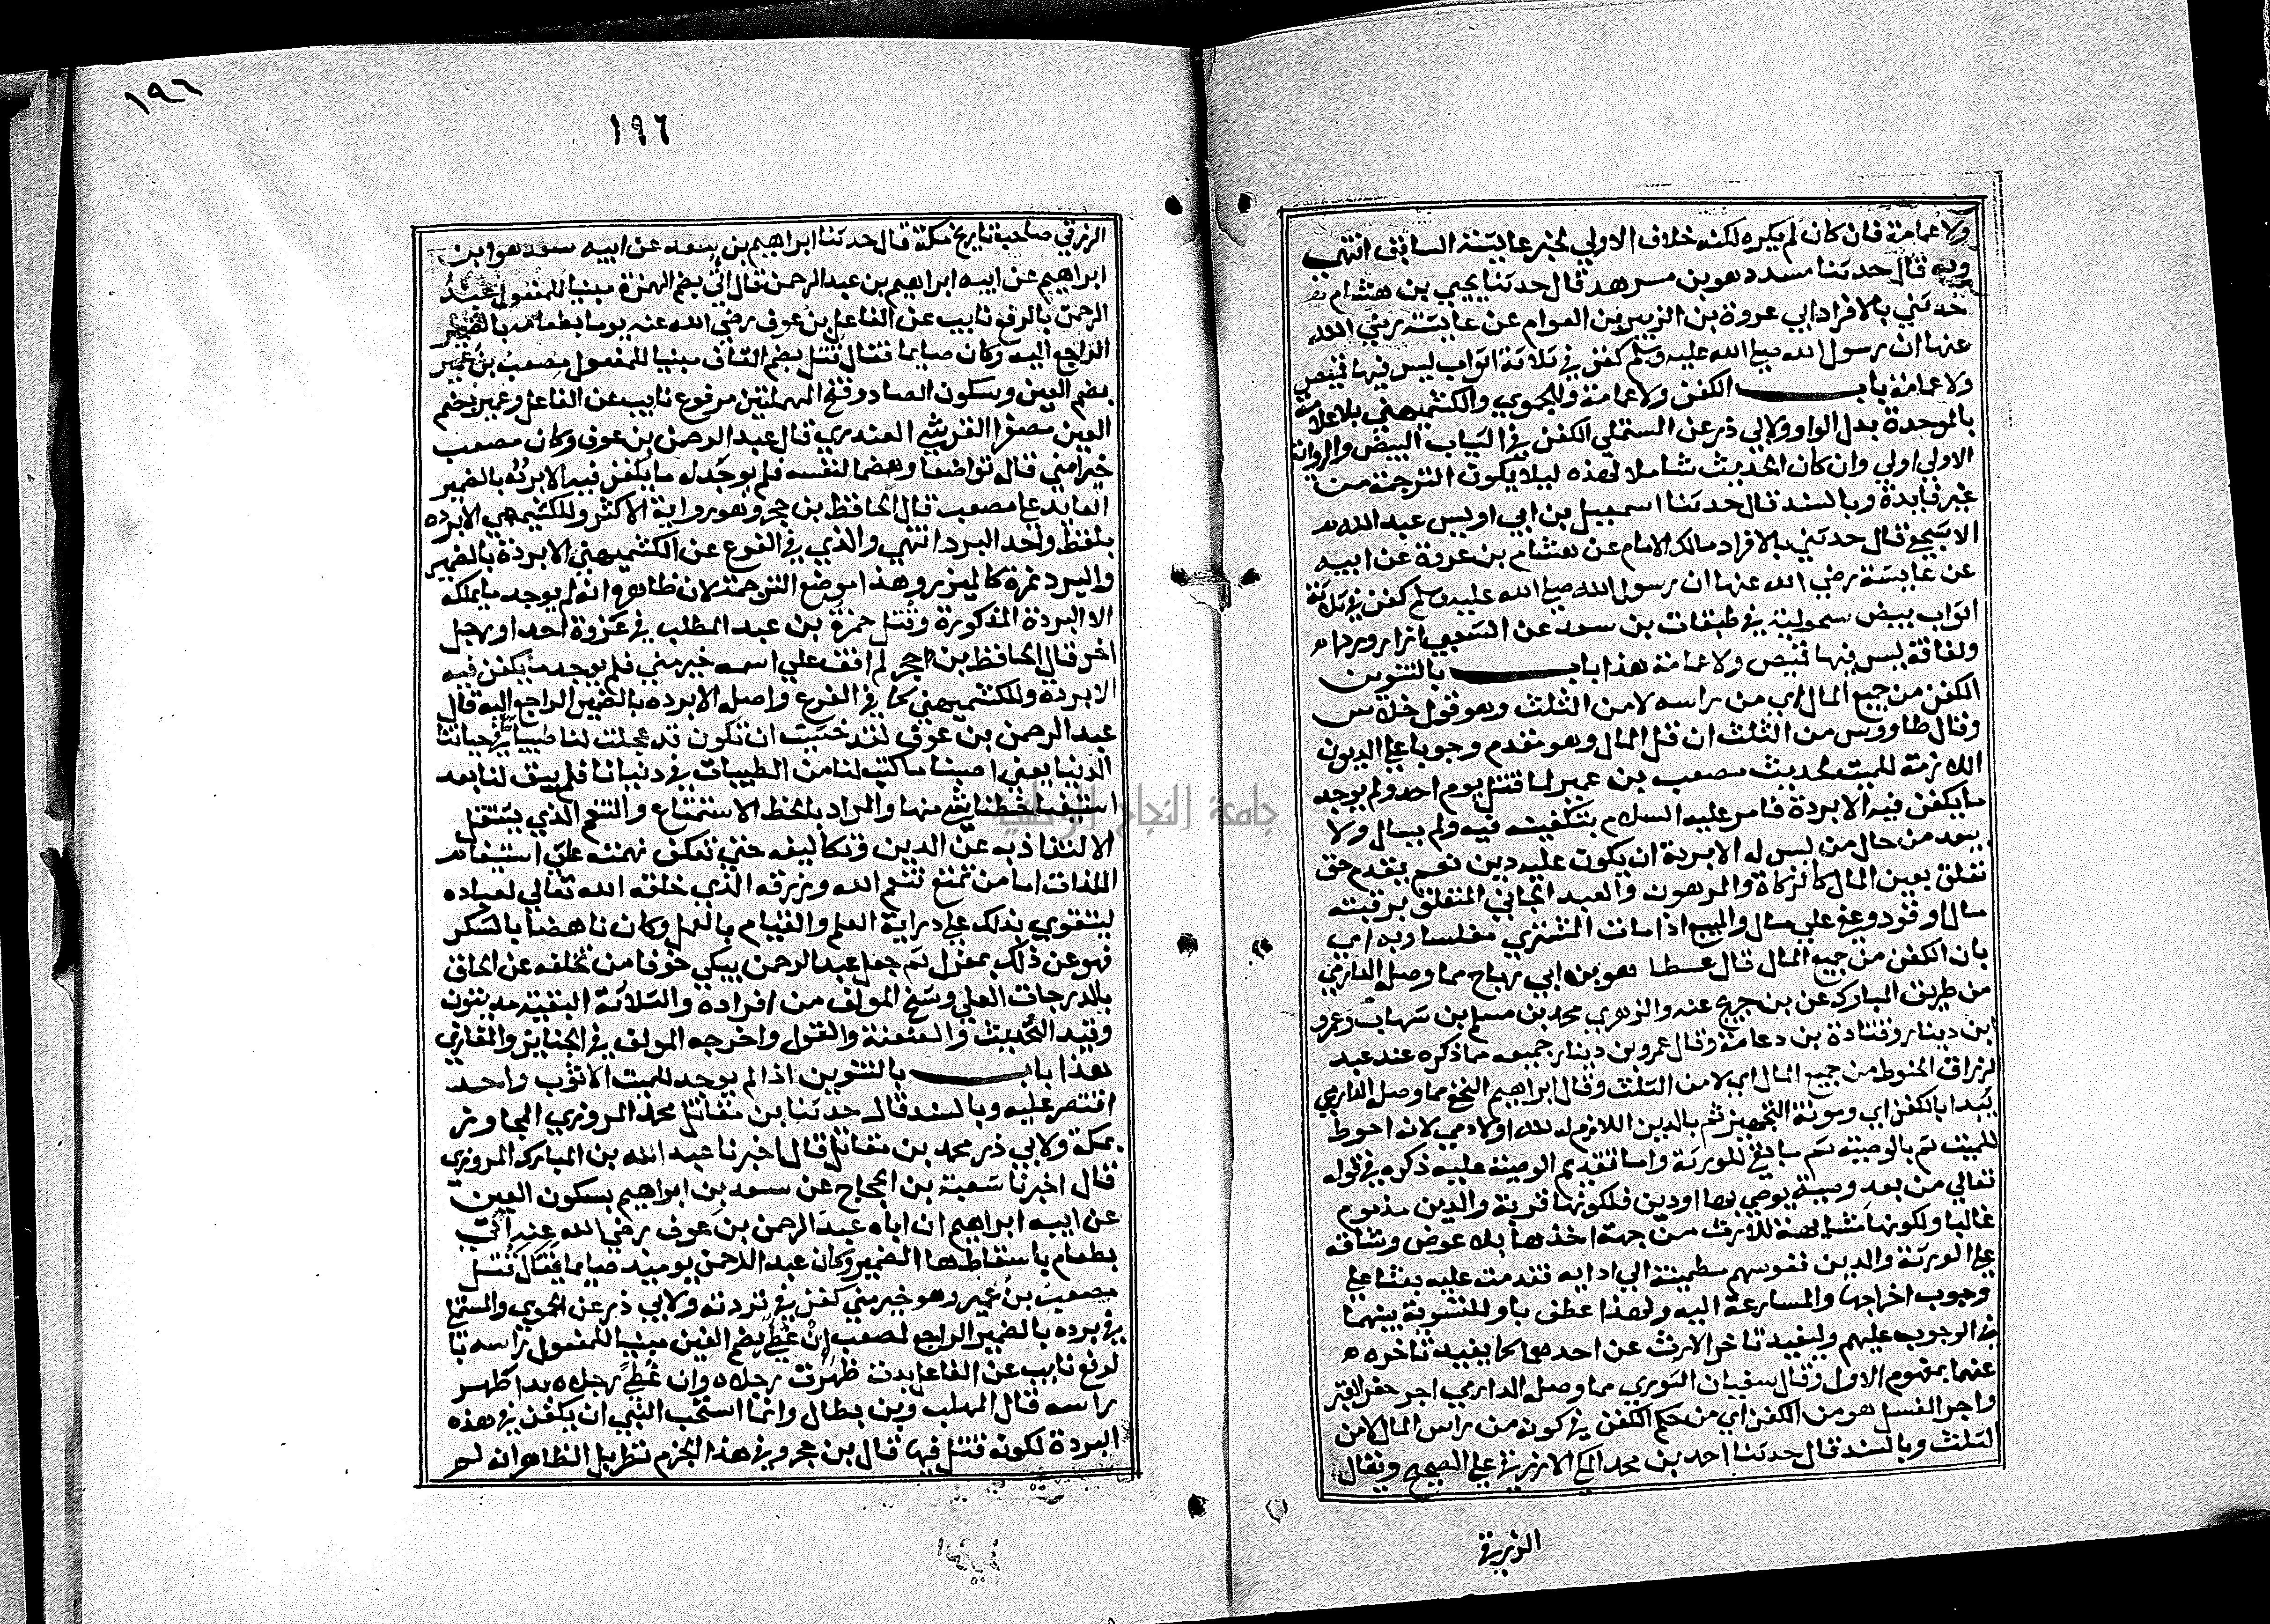 ولا عمامة فان كان لم يكره لكنه خلاف الاولي لخبر عايشة السابق انتهي
وبه قال حدثنا مسدد هو بن مسرهد قال حدثنا يحيي بن هشام
حدثني بالافراد ابي عروة بن الزبير بن العوام عن عايشة رضي الله
عنها ان رسول الله صلي الله عليه وسلم كفن في ثلاثة اثواب ليس فيها قميص
ولا عمامة باب الكفن ولا عمامة وللحموي والكشميهني بلا عمامة
بالموحدة بدل الواو ولابي ذر عن المستملي الكفن في الثياب البيض والرواية
الاولي اولي وان كان الحديث شاملا لهذه ليلا يكون الترجمة من
غير فايدة وبالسند قال حدثنا اسمعيل بن ابي اويس عبد الله
الاسبحي قال حدثني بالافراد مالك الامام عن هشام بن عروة عن ابيه
عن عايشة رضي الله عنها ان رسول الله صلي الله عليه وسلم كفن في ثلاثة
اثواب بيض سحولية في طبقات بن سعد عن الشعبي ازار وردا
ولفافة ليس فيها قميص ولا عمامة هذا باب بالتنوين
الكفن من جميع المال اي من راسه لا من الثلث وهو قول خلاس
وقال طاووس من الثلث ان قل المال وهو مقدم وجوبا علي الديون
اللازمة للميت لحديث مصعب بن عمير لما قتل يوم احد ولم يوجد
ما يكفن فيه الا بردة فامر عليه السلام بتكفينه فيه ولم يسال ولا
يبعد من حال من ليس له الا بردة ان يكون عليه دين نعم يقدم حق
تعلق بعين المال كالزكاة والمرهون والعبد الجاني المتعلق برقبته
مال او قود وعفي علي مال والمبيع اذا مات المشتري مفلسا وبه اي
بان الكفن من جميع المال قال عطا هو بن ابي رباح مما وصله الدارمي
من طريق المبارك عن بن جريج عنه والزهري محمد بن مسلم بن شهاب وعمرو
ابن دينار وقتادة بن دعامة وقال عمرو بن دينار جميعه مما ذكره عند عبد
لرزاق الحنوط من جميع المال اي لا من الثلث وقال ابراهيم النخعي مما وصله الدارمي
يبدا بالكفن اي ومونة التجهيز ثم بالدين اللازم له لله او لادمي لانه احوط
للميت ثم بالوصية ثم ما بقي للورثة واما تقديم الوصية عليه ذكره في قوله
تعالي من بعد وصية يوصي بها او دين فلكونها قربة والدين مذموم
غالبا ولكونها مشابهة للارث من جهة اخذها بلا عوض وشاقه
علي الورثة والدين نفوسهم مطمينة الي ادايه فقدمت عليه بعثا علي
وجوب اخراجها والمسارعة اليه ولهذا عطف باو للتسوية بينهما
في الوجوب عليهم وليفيد تاخر الارث عن احدهما كما يفيد تاخره
عنهما بمفهوم الاول وقال سفيان الثوري مما وصله الدارمي اجر حفر القبر
واجر الغسل هو من الكفن اي من حكم الكفن في كونه من راس المال لا من
لثلث وبالسند قال حدثنا احمد بن محمد المكي الازرقي علي الصحيح ويقال
الزرقي
١٩٦
١٩٦
الزرقي صاحب تاريخ مكة قال حدثنا ابراهيم بن سعد عن ابيه سعد هو ابن
ابراهيم عن ابيه ابراهيم بن عبد الرحمن قال اتي بضم الهمزة مبنيا للمفعول عبد
الرحمن بالرفع نايب عن الفاعل بن عوف رضي الله عنه يوما بطعامه بالضمير
الراجع اليه وكان صايما فقال قتل بضم القاف مبنيا للمفعول مصعب بن عمير
بضم العين وسكون الصاد وفتح المهملتين مرفوع نايب عن الفاعل وعمير بضم
العين مصغرا القرشي العبدري قال عبد الرحمن بن عوف وكان مصعب
خيرا مني قاله تواضعا وهضما لنفسه فلم يوجد له ما يكفن فيه الا برده بالضمير
العايد علي مصعب قال الحافظ بن حجر وهو رواية الاكثر وللكشميهني الا بردة
بلفظ واحد البرد انتهي والذي في الفرع عن الكشميهني الا بردة بالضمير
والبرد نمرة كالميزر وهذا موضع الترجمة لان ظاهره انه لم يوجد ما يملكه
الا البردة المذكورة وقتل حمزة بن عبد المطلب في غزوة احد او رجل
اخر قال الحافظ بن حجر لم اقف علي اسمه خير مني فلم يوجد ما يكفن فيه
الا بردة وللكشميهني كما في الفرع واصله الا برده بالضمير الراجع اليه قال
عبد الرحمن بن عوف لقد خشيت ان تكون قد عجلت لنا طيباتنا في حياتنا
الدنيا يعني اصبنا ما كتب لنا من الطيبات في دنيانا فلم يبق لنا بعد
استيفا حظنا شي منها والمراد بالحظ الاستمتاع والتنعم الذي يشتغل
الالتذاذ به عن الدين وتكاليفه حتي تعكف نهمته علي استيفا
اللذات اما من تمتع بنعم الله ورزقه الذي خلقه الله تعالي لعباده
ليتقوي بذلك علي دراية العلم والقيام بالعمل وكان ناهضا بالشكر
فهو عن ذلك بمعزل ثم جعل عبد الرحمن يبكي خوفا من تخلفه عن الحاق
بالدرجات العلي وشيخ المولف من افراده والثلاثة البقية مدينون
وفيه التحديث والعنعنة والقول واخرجه المولف في الجنايز والمغازي
هذا باب بالتنوين اذا لم يوجد للميت الا ثوب واحد
اقتصر عليه وبالسند قال حدثنا بن مقاتل محمد المروزي المجاور
بمكة ولابي ذر محمد بن مقاتل قال اخبرنا عبد الله بن المبارك المروزي
قال اخبرنا شعبة بن الحجاج عن سعد بن ابراهيم بسكون العين
عن ابيه ابراهيم ان اباه عبد الرحمن بن عوف رضي الله عنه اتي
بطعام باسقاطها الضمير وكان عبد الرحمن يوميذ صايما فقال قتل
مصعب بن عمير وهو خير مني كفن في بردته ولابي ذر عن الحموي والمستملي
في برده بالضمير الراجع لمصعب ان غطي بضم الغين مبنيا للمفعول راسه با
لرفع نايب عن الفاعل بدت ظهرت رجلاه وان غطي رجلاه بدا ظهر
راسه قال المهلب وبن بطال وانما استحب النبي ان يكفن في هذه
البردة لكونه قتل فيها قال بن حجر وفي هذا الجزم نظر بل الظاهر انه لم
جامعة النجاح الوطنية